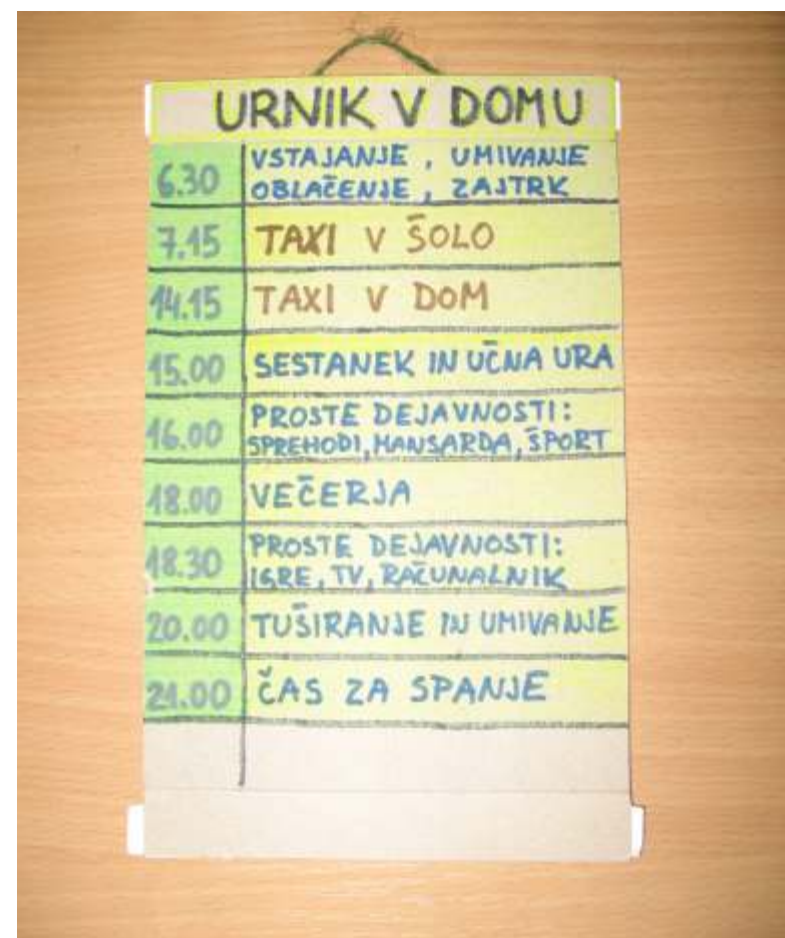 URNIK V DOMU
6.30 VSTAJANJE, UMIVANJE
OBLAČENJE, ZAJTRK
7.15 TAXI V ŠOLO
14.15 TAXI V DOM
15.00 SESTANEK IN UČNA URA
16.00 PROSTE DEJAVNOSTI:
SPREHODI, MANSARDA, ŠPORT
18.00 VEČERJA
18.30 PROSTE DEJAVNOSTI:
IGRE, TV, RAČUNALNIK
20.00 TUŠIRANJE IN UMIVANJE
21.00 ČAS ZA SPANJE